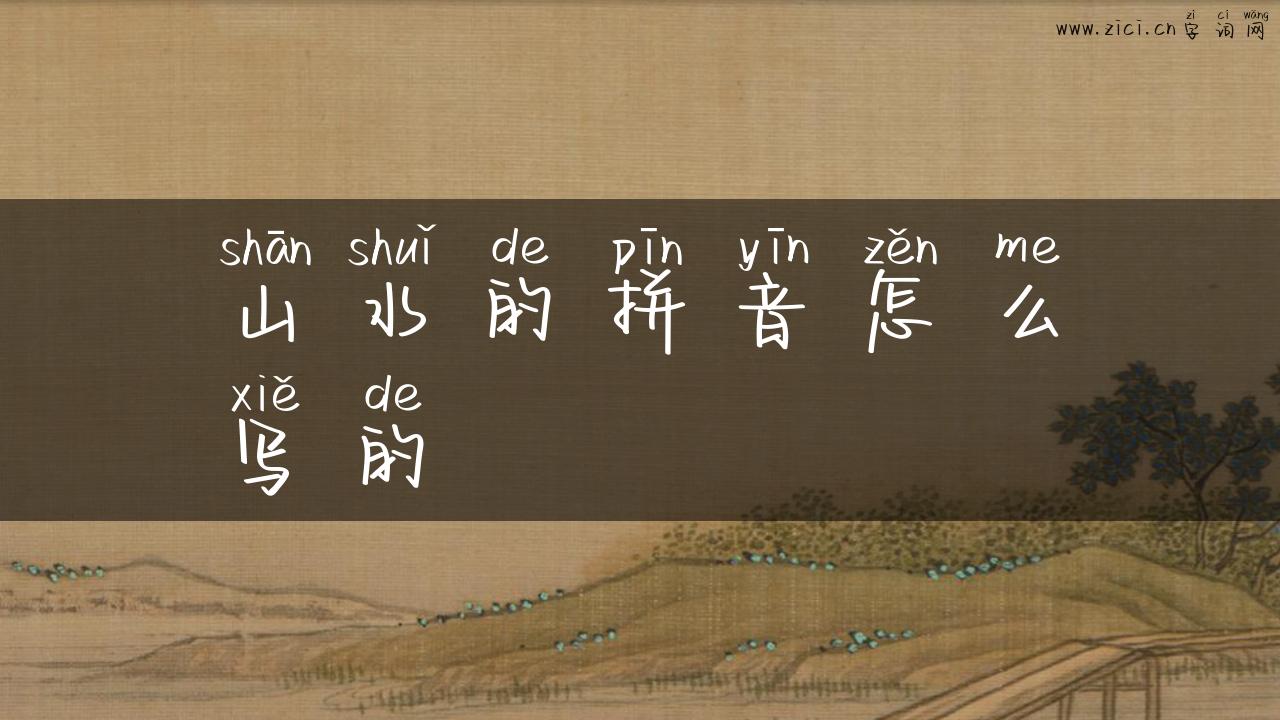 zì cí wǎng
www.zici.cn 字 词 网
shān shuǐ de pīn yīn zěn me
山 水 的 拼 音 怎 么
xiě de
写 的